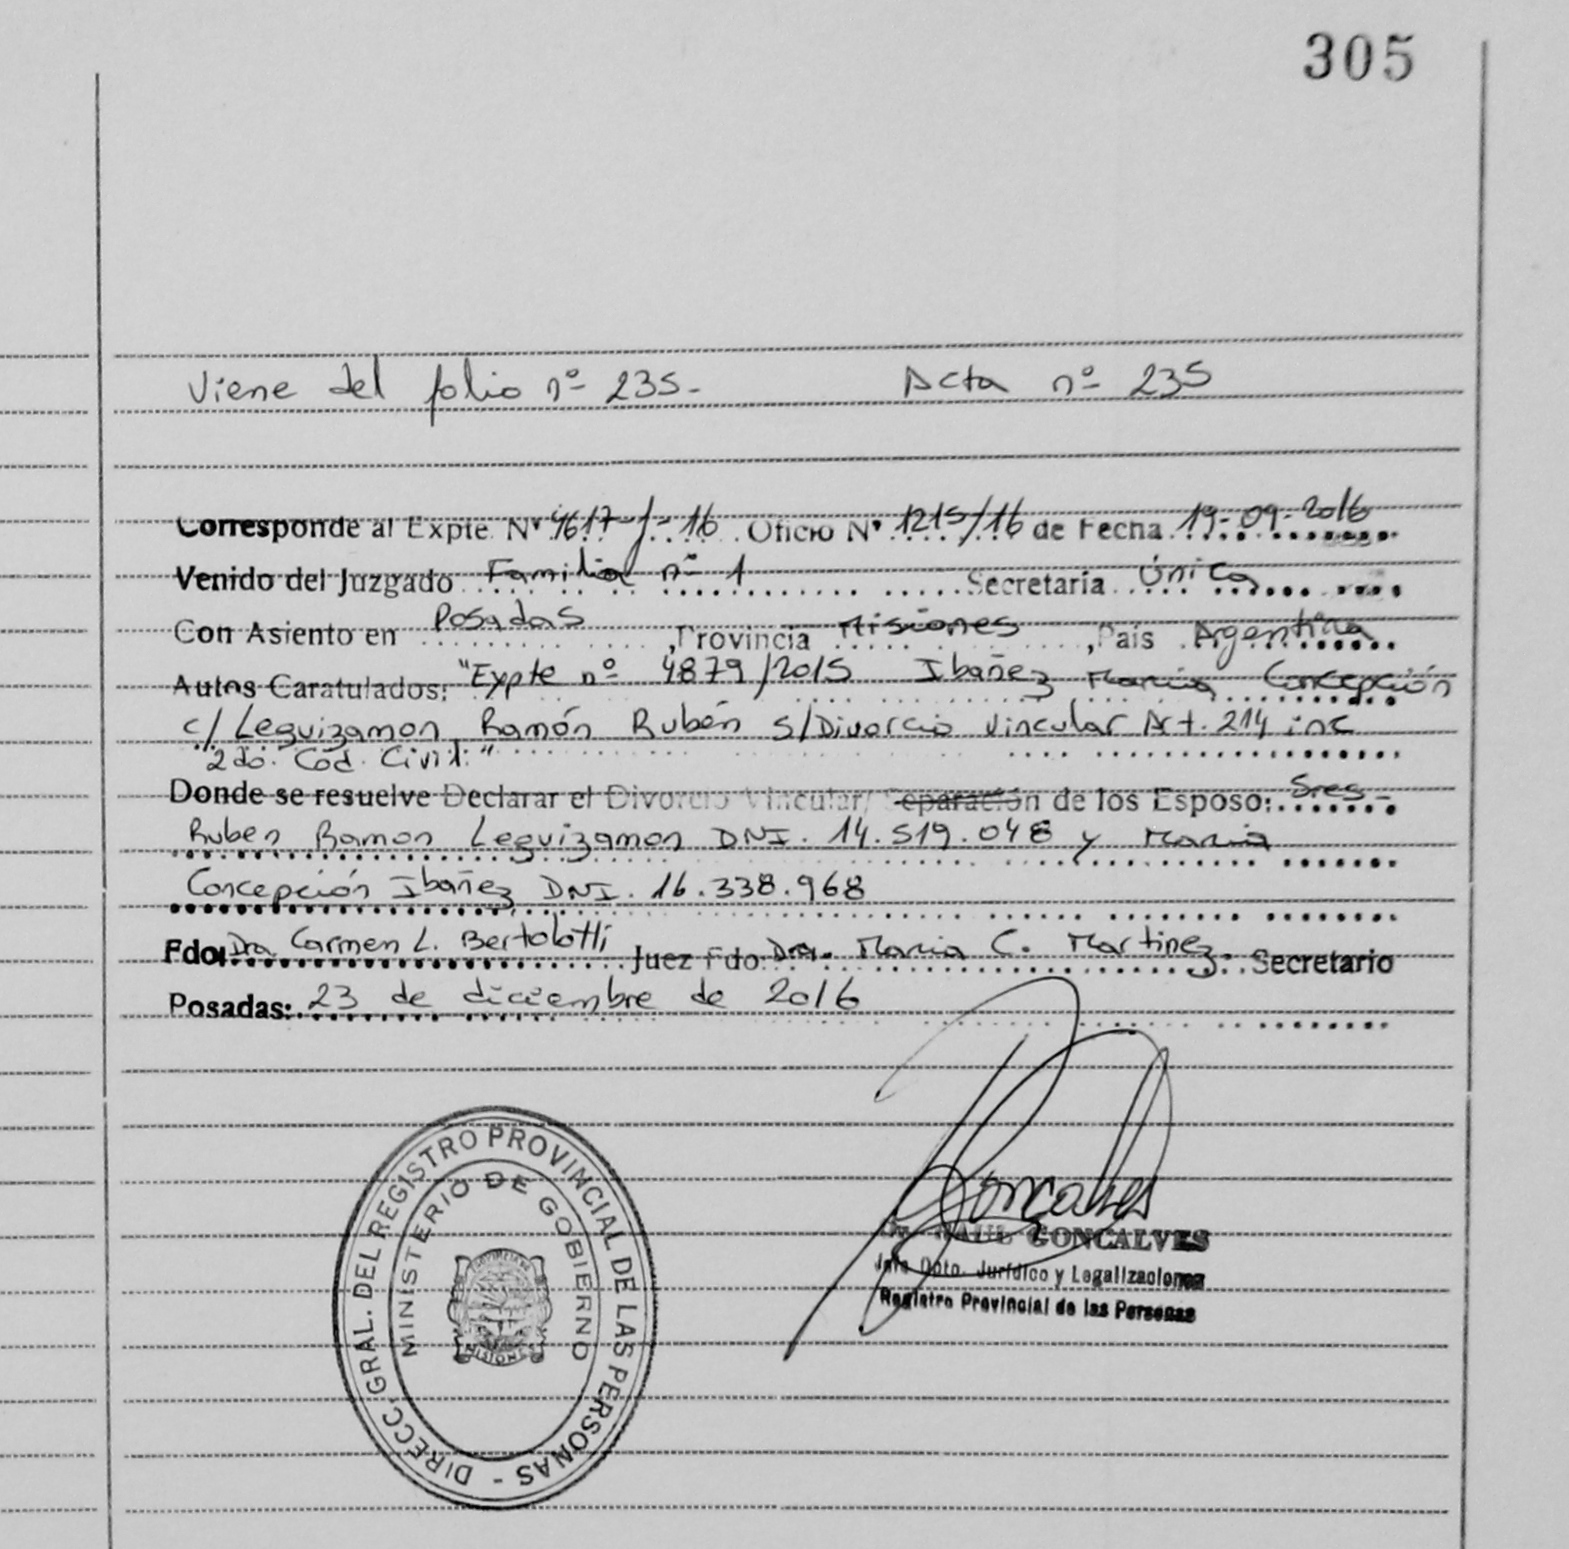 305
Viene del folio nº 235. Acta nº 235
Corresponde al Expte Nº 4617-J-16 Oficio Nº 1215/16 de Fecha 19-09-2016
Venido del Juzgado Familia nº 1 Secretaria Única
Con Asiento en Posadas, Provincia Misiones, País Argentina
Autos Caratulados: "Expte nº 4879/2015 Ibañez Maria Concepción
c/ Leguizamon Ramón Rubén s/Divorcio Vincular Art. 214 inc
2do. Cod. Civil."
Donde se resuelve Declarar el Divorcio Vincular/ Separación de los Esposo: Sres-
Ruben Ramon Leguizamon DNI. 14.519.048 y Maria
Concepción Ibañez DNI. 16.338.968
Fdo: Dra. Carmen L. Bertolotti Juez Fdo: Dra. Maria C. Martinez. Secretario
Posadas: 23 de diciembre de 2016
DIRECC. GRAL. DEL REGISTRO PROVINCIAL DE LAS PERSONAS -
MINISTERIO DE GOBIERNO
MISIONES
Goncalves
GONCALVES
Jefe Dpto. Jurídico y Legalizaciones
Registro Provincial de las Personas